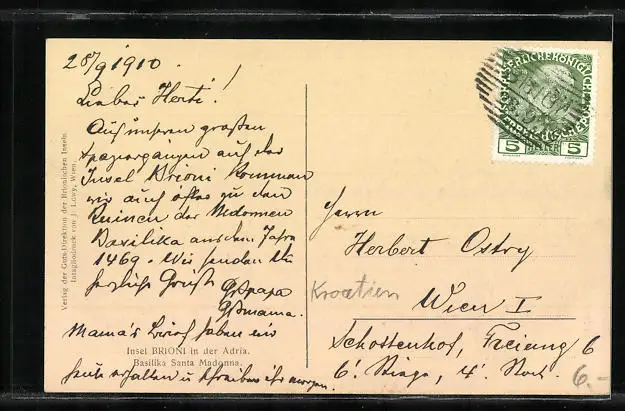 28/9 1910.
Liebes Herti!
Auf unseren großen
Spaziergängen auf der
Insel Brioni kommen
wir auch öfters zu den
Ruinen der Madonnen
Basilika aus dem Jahre
1469. Wir senden Dir
herzliche Grüße
Großpapa
Großmama.
Mama's Brief haben wir
heute erhalten u schreiben ihr morgen.
Insel BRIONI in der Adria.
Basilika Santa Madonna.
Verlag der Guts-Direktion der Brionischen Inseln.
Intagliodruck von J. Löwy, Wien.
5 5
Herrn
Herbert Ostry
Kroatien
Wien I
Schottenhof, Freiung 6
6. Stiege, 4. Stock.
6.-